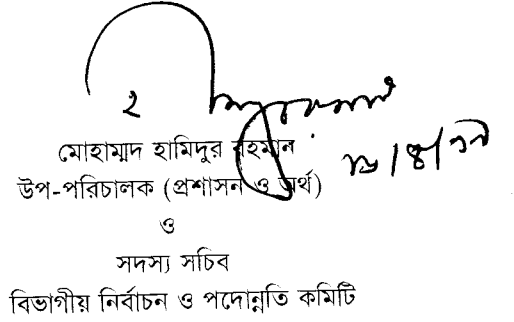 মোহাম্মদ হামিদুর রহমান
উপ-পরিচালক (প্রশাসন ও অর্থ)
ও
সদস্য সচিব
বিভাগীয় নির্বাচন ও পদোন্নতি কমিটি